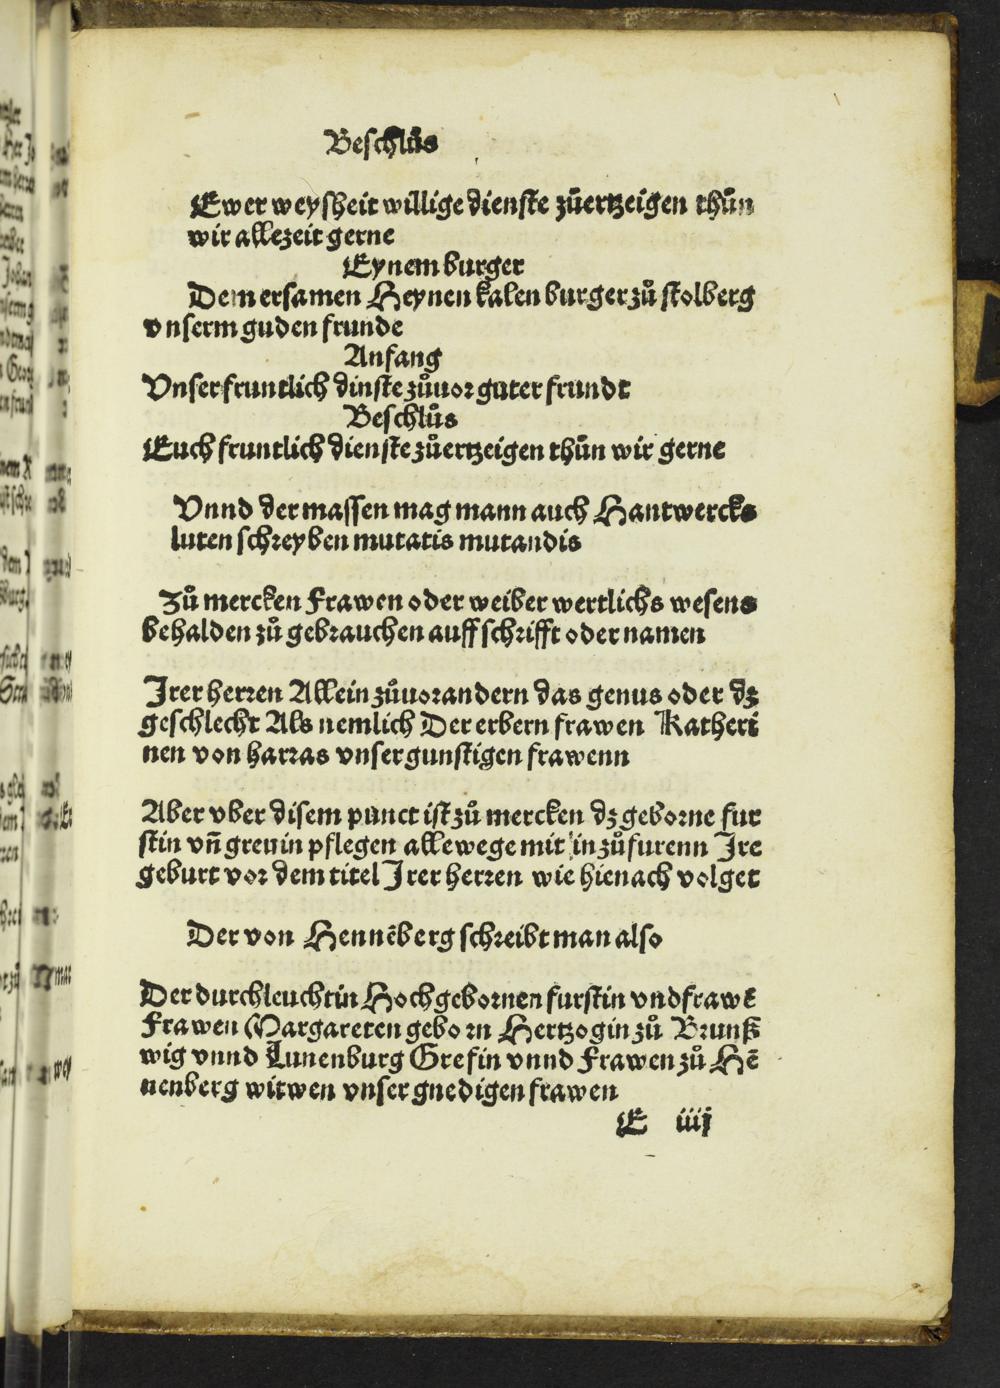 Beschlůs
Ewer weysheit willige dienste zůertzeigen thůn
wir allezeit gerne
Eynem burger
Dem ersamen Heynen kalen burger zů stolberg
vnserm guden frunde
Anfang
Vnser fruntlich dinste zůuor guter frundt
Beschlůs
Euch fruntlich dienste zůertzeigen thůn wir gerne
Vnnd der massen mag mann auch Hantwercks
luten schreyben mutatis mutandis
Zů mercken Frawen oder weiber wertlichs wesens
behalden zů gebrauchen auff schrifft oder namen
Irer herren Allein zůuorandern das genus oder dz
geschlecht Als nemlich Der erbern frawen Katheri
nen von harras vnser gunstigen frawenn
Aber vber disem punct ist zů mercken dz geborne fur
stin vn̄ greuin pflegen allewege mit in zůfurenn Ire
geburt vor dem titel Irer herren wie hienach volget
Der von Hennēberg schreibt man also
Der durchleuchtin Hochgebornen furstin vnd frawē
Frawen Margareten geborn Hertzogin zů Brunß
wig vnnd Lunenburg Grefin vnnd Frawen zů Hē
nenberg witwen vnser gnedigen frawen
E iiij